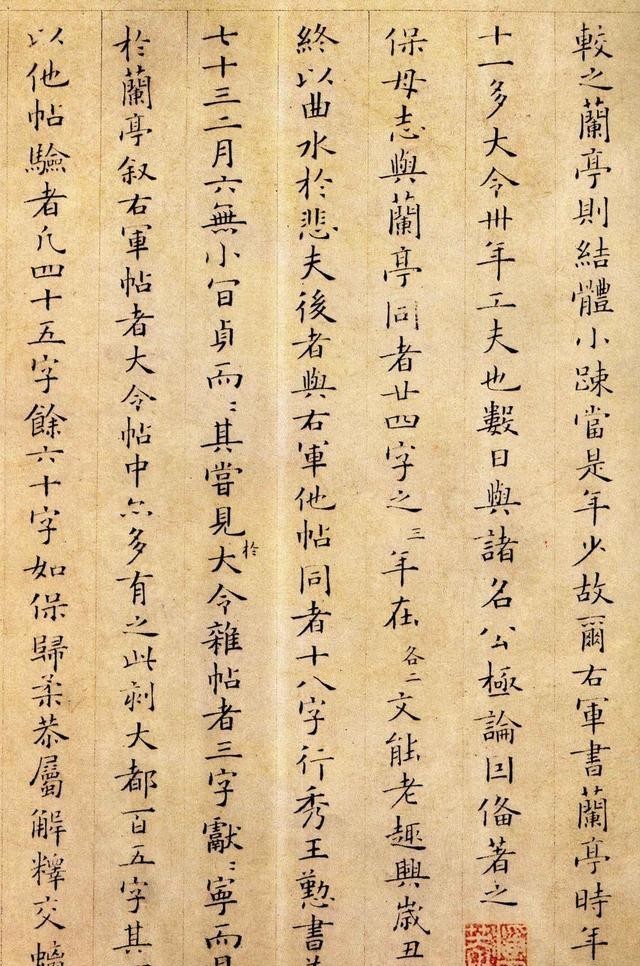 較之蘭亭則結體小踈當是年少故爾右軍書蘭亭時年
十一多大令卅年工夫也數日與諸名公極論囙俻著之
保母志與蘭亭同者廿四字之三年在各二文能老趣興歲丑
終以曲水於悲夫後者與右軍他帖同者十八字行秀王懃書
七十三二月六無小貞而〻其嘗見於大令雜帖者三字獻〻寧而
於蘭亭叙右軍帖者大令帖中亦多有之此刻大都百五字其
以他帖驗者凡四十五字餘六十字如保歸柔恭屬解釋交螭